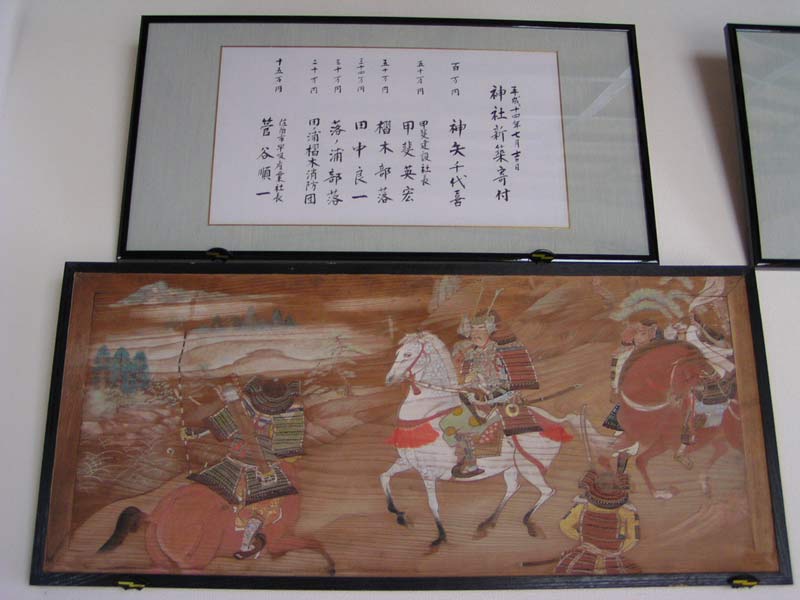 平成十四年七月吉日
神社新築寄付
百万円 神矢千代喜
五十万円 甲斐建設社長
甲斐英宏
五十万円 樒木部落
三十四万円 田中良一
三十万円 落ノ浦部落
二十万円 田浦樒木消防団
十五万円 社長
菅谷順一